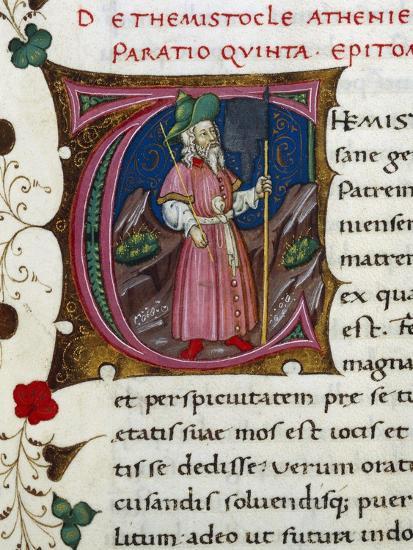 D E THEMISTOCLE ATHENIE
PARATIO QVINTA · EPITO
T HEMIS
sane ge
Patrem
nienser
matrem
ex qua
est.
magna
et perspicuitatem pre se tu
etatis suae mos est iocis et
tis se dedisse: verum orat
cusandis soluendisq; puer
litum adeo ut futura indo